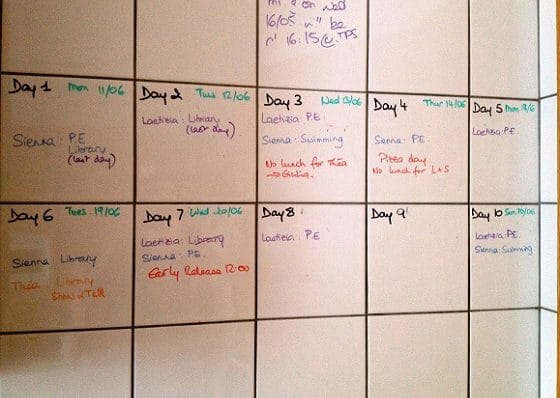 on Wed
16/05
be
16:15 @ TPS
Day 1 Mon 11/06
Sienna: P.E
Library
(last day)
Day 2 Tues 12/06
Laetizia: Library
(last day)
Day 3 Wed 13/06
Laetizia: P.E.
Sienna: Swimming
No lunch for Thea
→ Giulia.
Day 4 Thur 14/06
Sienna: P.E.
Pizza day
No lunch for L+S
Day 5 Mon 18/6
Laetizia: P.E.
Day 6 Tues 19/06
Sienna: Library
Thea: Library
Show & Tell
Day 7 Wed 20/06
Laetizia: Library
Sienna: P.E.
Early Release 12:00
Day 8
Laetizia: P.E
Day 9
Day 10
Laetizia: P.E.
Sienna: Swimming